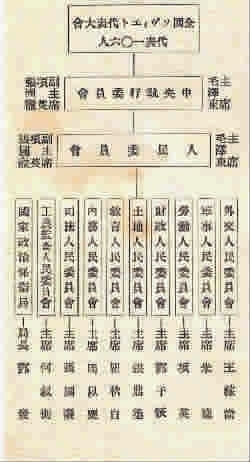 全國ソヴィエト代表大會
代表一〇六人
中央執行委員會
主席 毛澤東
副主席 項英 張國燾
人民委員會
主席 毛澤東
副主席 項英 張國燾
外交人民委員會 主席 王稼
軍事人民委員會 主席 朱德
勞働人民委員會 主席 項英
財政人民委員會 主席 鄧子恢
土地人民委員會 主席 張鼎丞
教育人民委員會 主席 瞿秋白
內務人民委員會 主席 周以栗
司法人民委員會 主席 張國燾
工農監察人民委員會 主席 何叔衡
國家政治保衛局 局長 鄧發